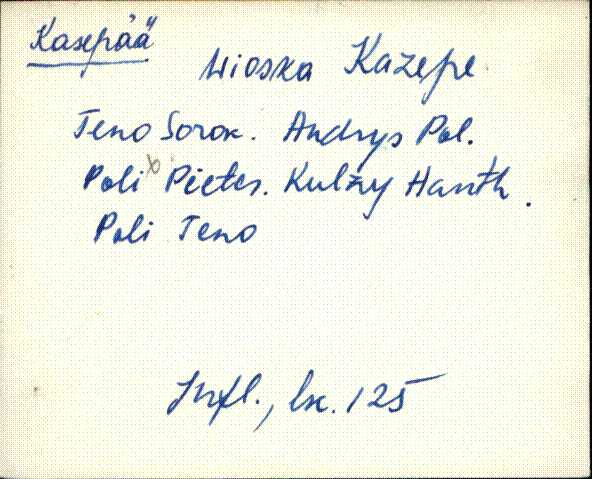 Kasepää
Wioska Kazepe
Teno Sorok. Andrys Pol.
Poli Pieter. Kulzny Hanth.
Poli Teno
Infl., lk. 125